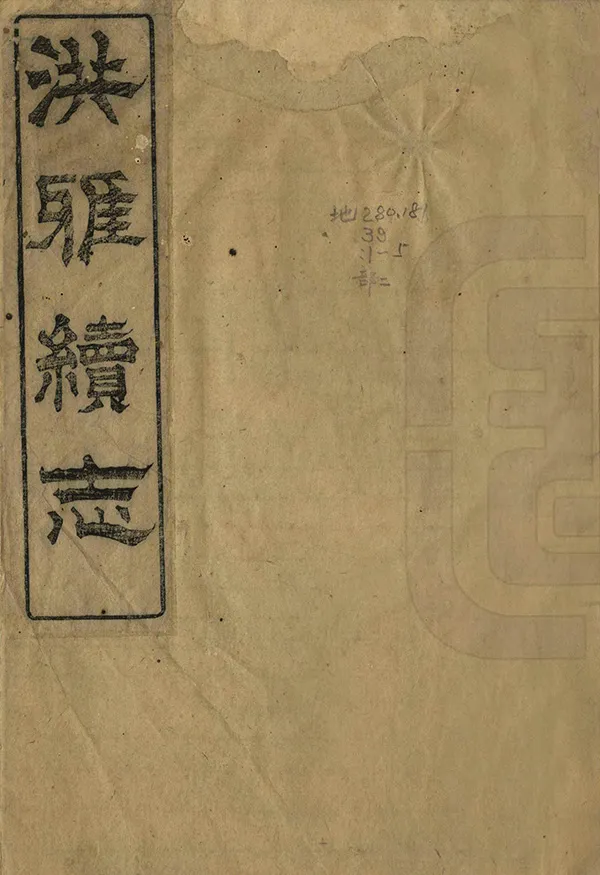 洪雅續志
地280.181
39
:1-5
部二